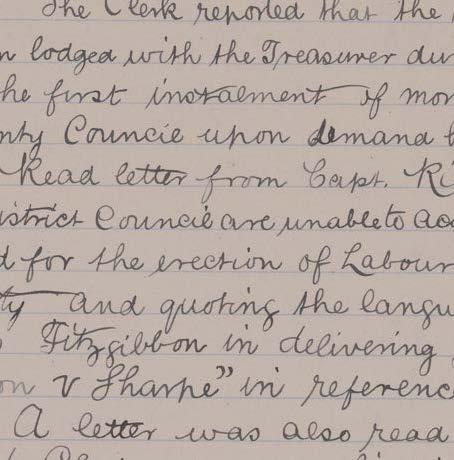 The Clerk reported that the
n lodged with the Treasurer du
he first instalment of mon
nty Council upon demand
Read letter from Capt. Ri
istrict Council are unable to acc
d for the erection of Labour
ty and quoting the langu
Fitzgibbon in delivering
on v Sharpe" in referenc
A letter was also read